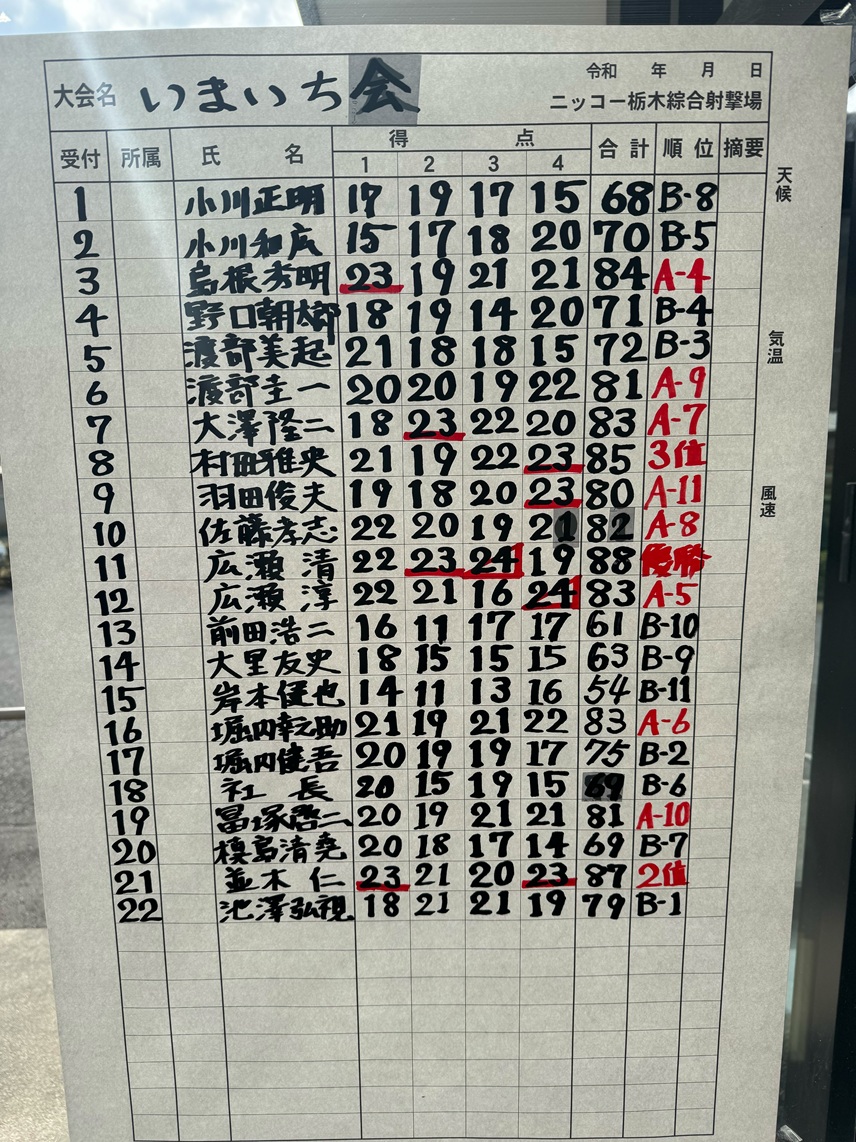 大会名 いまいち会 令和 年 月 日
ニッコー栃木綜合射撃場
受付 所属 氏名 得点 合計 順位 摘要
1 2 3 4
1 小川正明 17 19 17 15 68 B-8
2 小川和広 15 17 18 20 70 B-5
3 島根秀明 23 19 21 21 84 A-4
4 野口朝太郎 18 19 14 20 71 B-4
5 渡部美起 21 18 18 15 72 B-3
6 渡部圭一 20 20 19 22 81 A-9
7 大澤隆二 18 23 22 20 83 A-7
8 村田雅史 21 19 22 23 85 3位
9 羽田俊夫 19 18 20 23 80 A-11
10 佐藤孝志 22 20 19 21 82 A-8
11 広瀬 清 22 23 24 19 88 優勝
12 広瀬 淳 22 21 16 24 83 A-5
13 前田浩二 16 11 17 17 61 B-10
14 大里友史 18 15 15 15 63 B-9
15 岸本健也 14 11 13 16 54 B-11
16 堀内幸之助 21 19 21 22 83 A-6
17 堀内健吾 20 19 19 17 75 B-2
18 社長 20 15 19 15 69 B-6
19 冨塚啓二 20 19 21 21 81 A-10
20 榎島清堯 20 18 17 14 69 B-7
21 並木 仁 23 21 20 23 87 2位
22 池澤弘視 18 21 21 19 79 B-1
天候
気温
風速